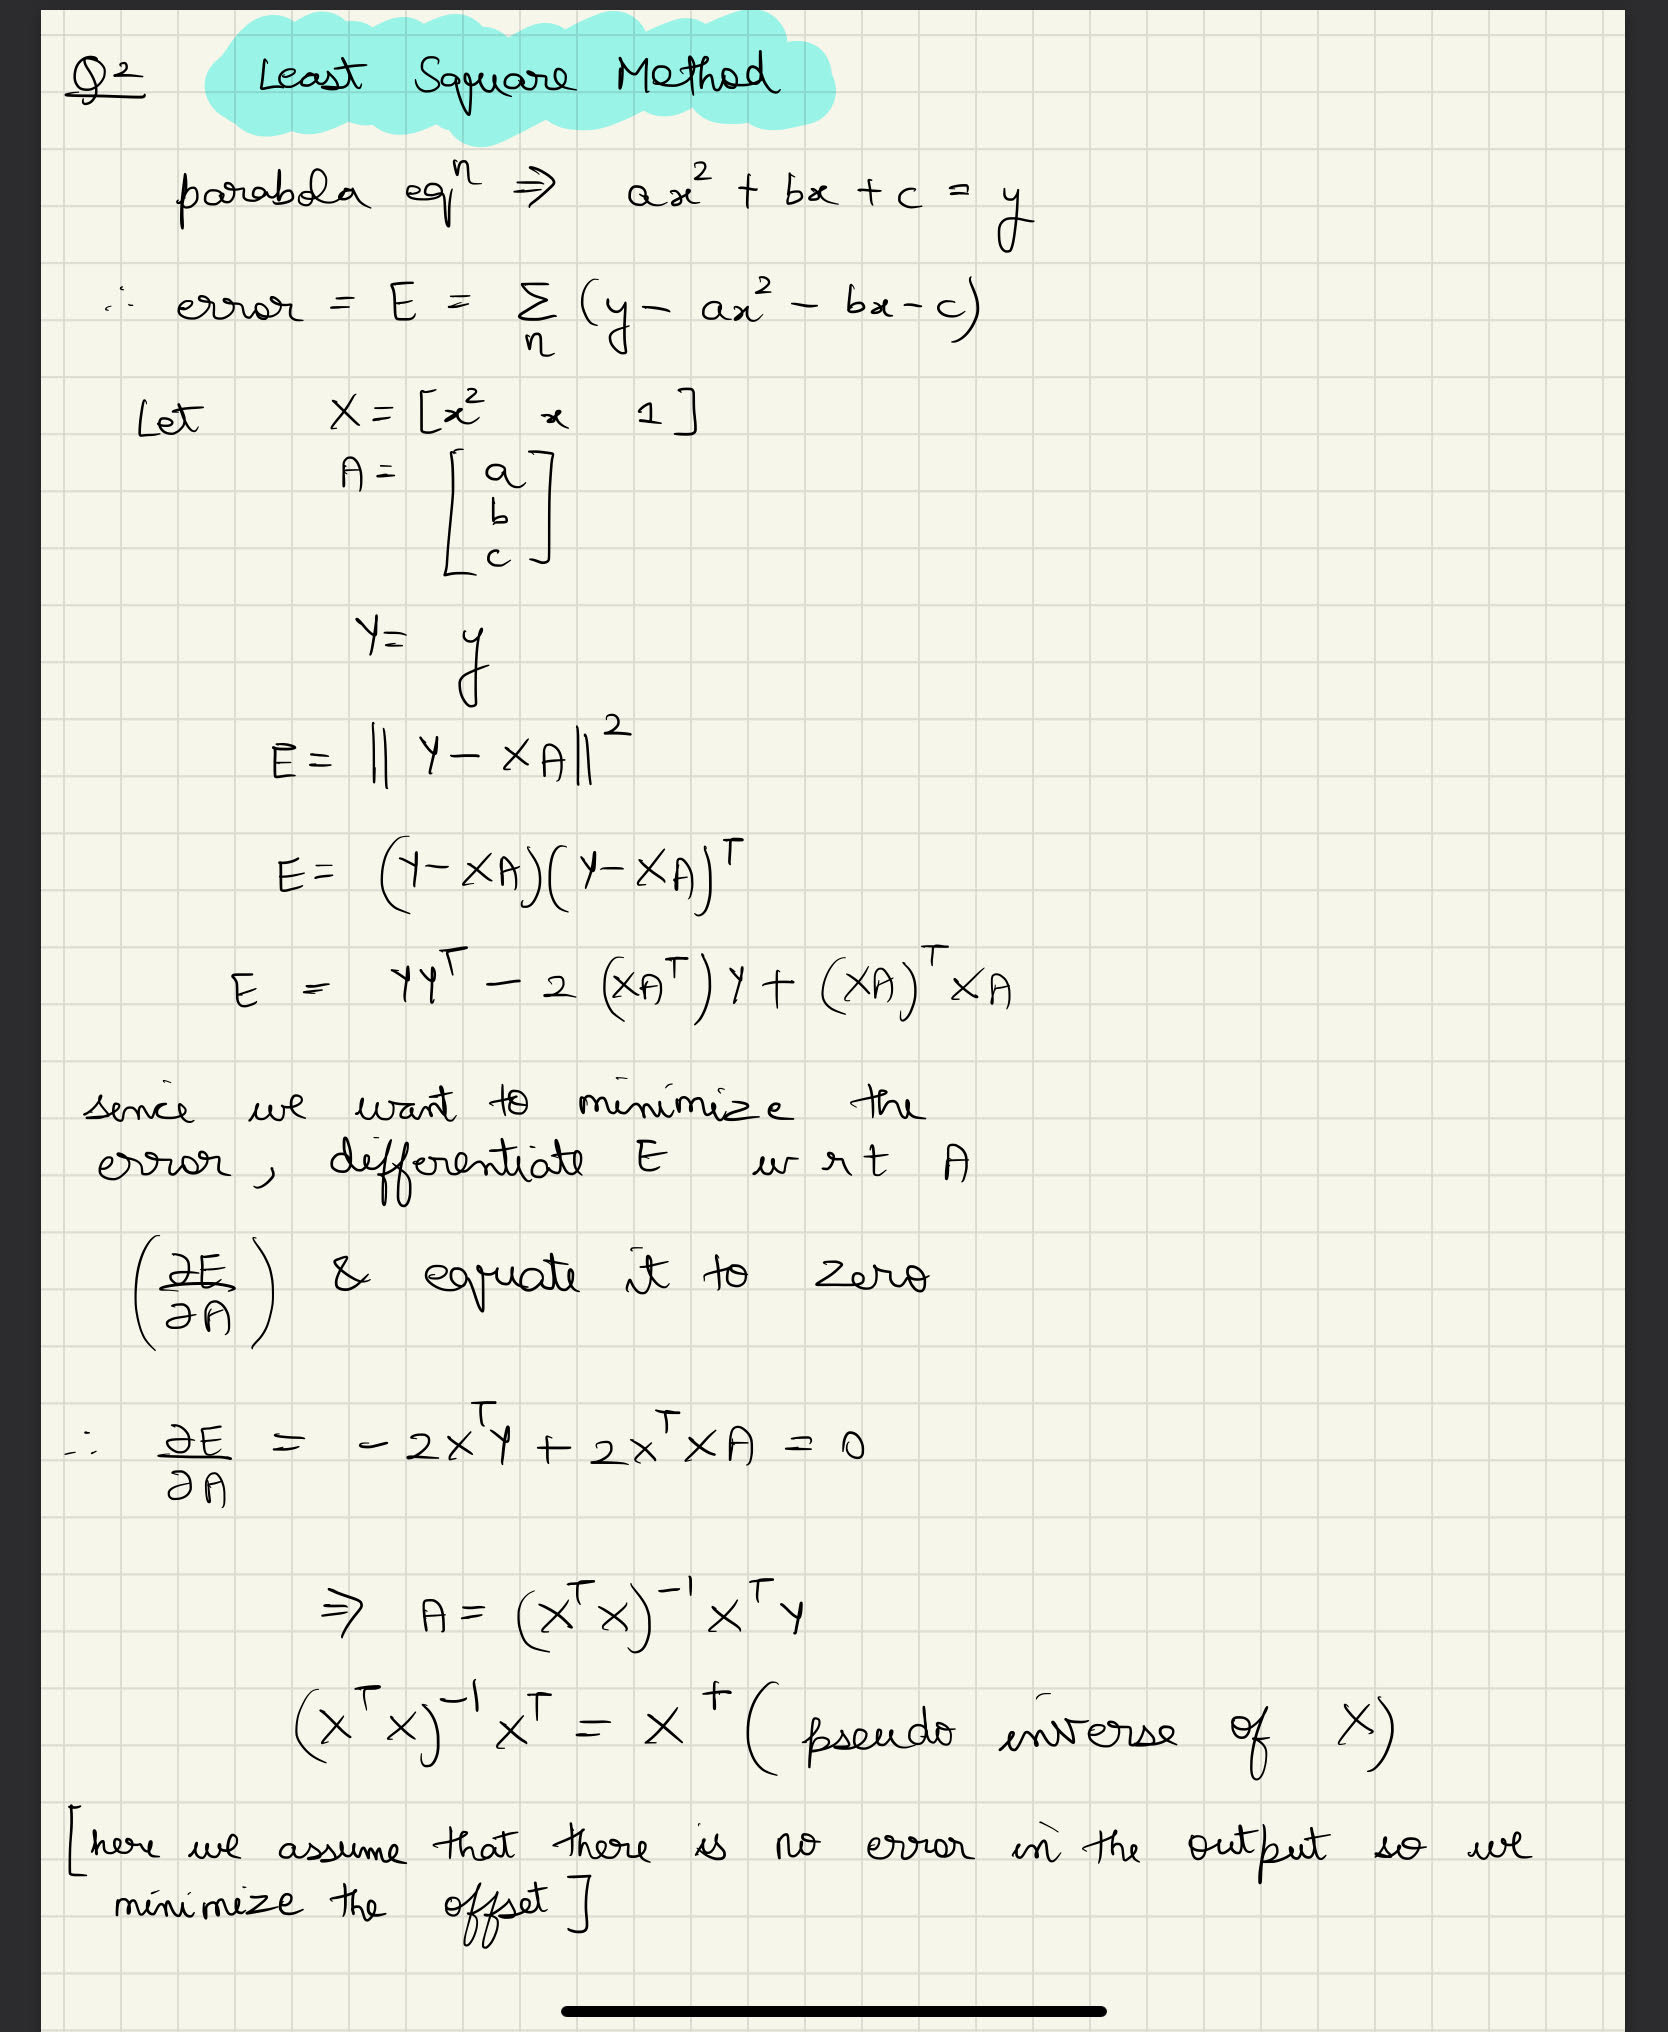 Q2 Least Square Method
parabola eqⁿ ⇒ ax² + bx + c = y
∴ error = E = Σₙ (y - ax² - bx - c)
Let X = [x² x 1]
A = [a
b
c]
Y = y
E = || Y - XA ||²
E = (Y - XA)(Y - XA)ᵀ
E = YYᵀ - 2 (XAᵀ) Y + (XA)ᵀ XA
sence we want to minimize the
error, differentiate E w r t A
(∂E/∂A) & equate it to zero
∴ ∂E/∂A = - 2XᵀY + 2XᵀXA = 0
⇒ A = (XᵀX)⁻¹ XᵀY
(XᵀX)⁻¹ Xᵀ = X⁺ (pseudo inverse of X)
[here we assume that there is no error in the output so we
minimize the offset]